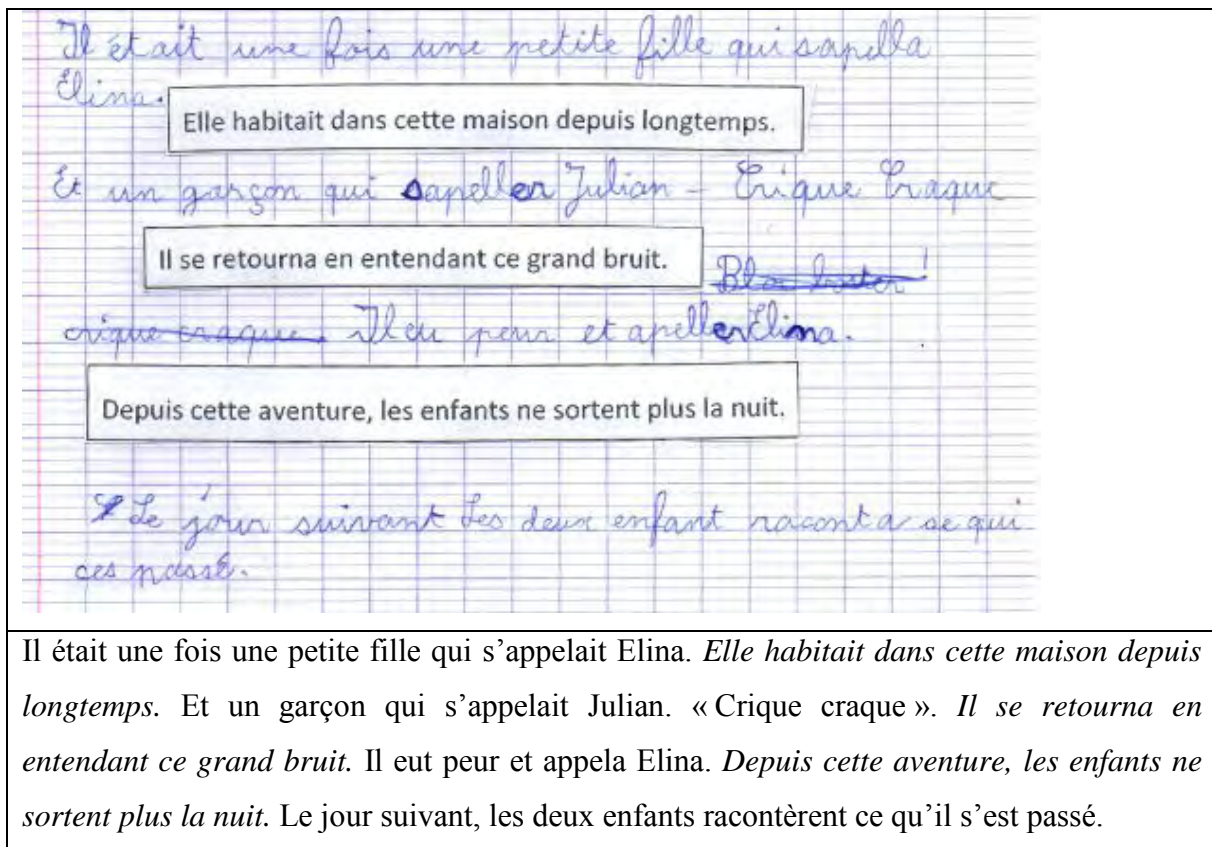 Il était une fois une petite fille qui sapella
Elina.
Elle habitait dans cette maison depuis longtemps.
Et un garçon qui sapeller Julian - Crique Craque
Il se retourna en entendant ce grand bruit.
crique craque. Il eu peur et apeller Elina.
Depuis cette aventure, les enfants ne sortent plus la nuit.
Le jour suivant les deux enfant raconta se qui
ces passé.
Il était une fois une petite fille qui s’appelait Elina. Elle habitait dans cette maison depuis
longtemps. Et un garçon qui s’appelait Julian. « Crique craque ». Il se retourna en
entendant ce grand bruit. Il eut peur et appela Elina. Depuis cette aventure, les enfants ne
sortent plus la nuit. Le jour suivant, les deux enfants racontèrent ce qu’il s’est passé.